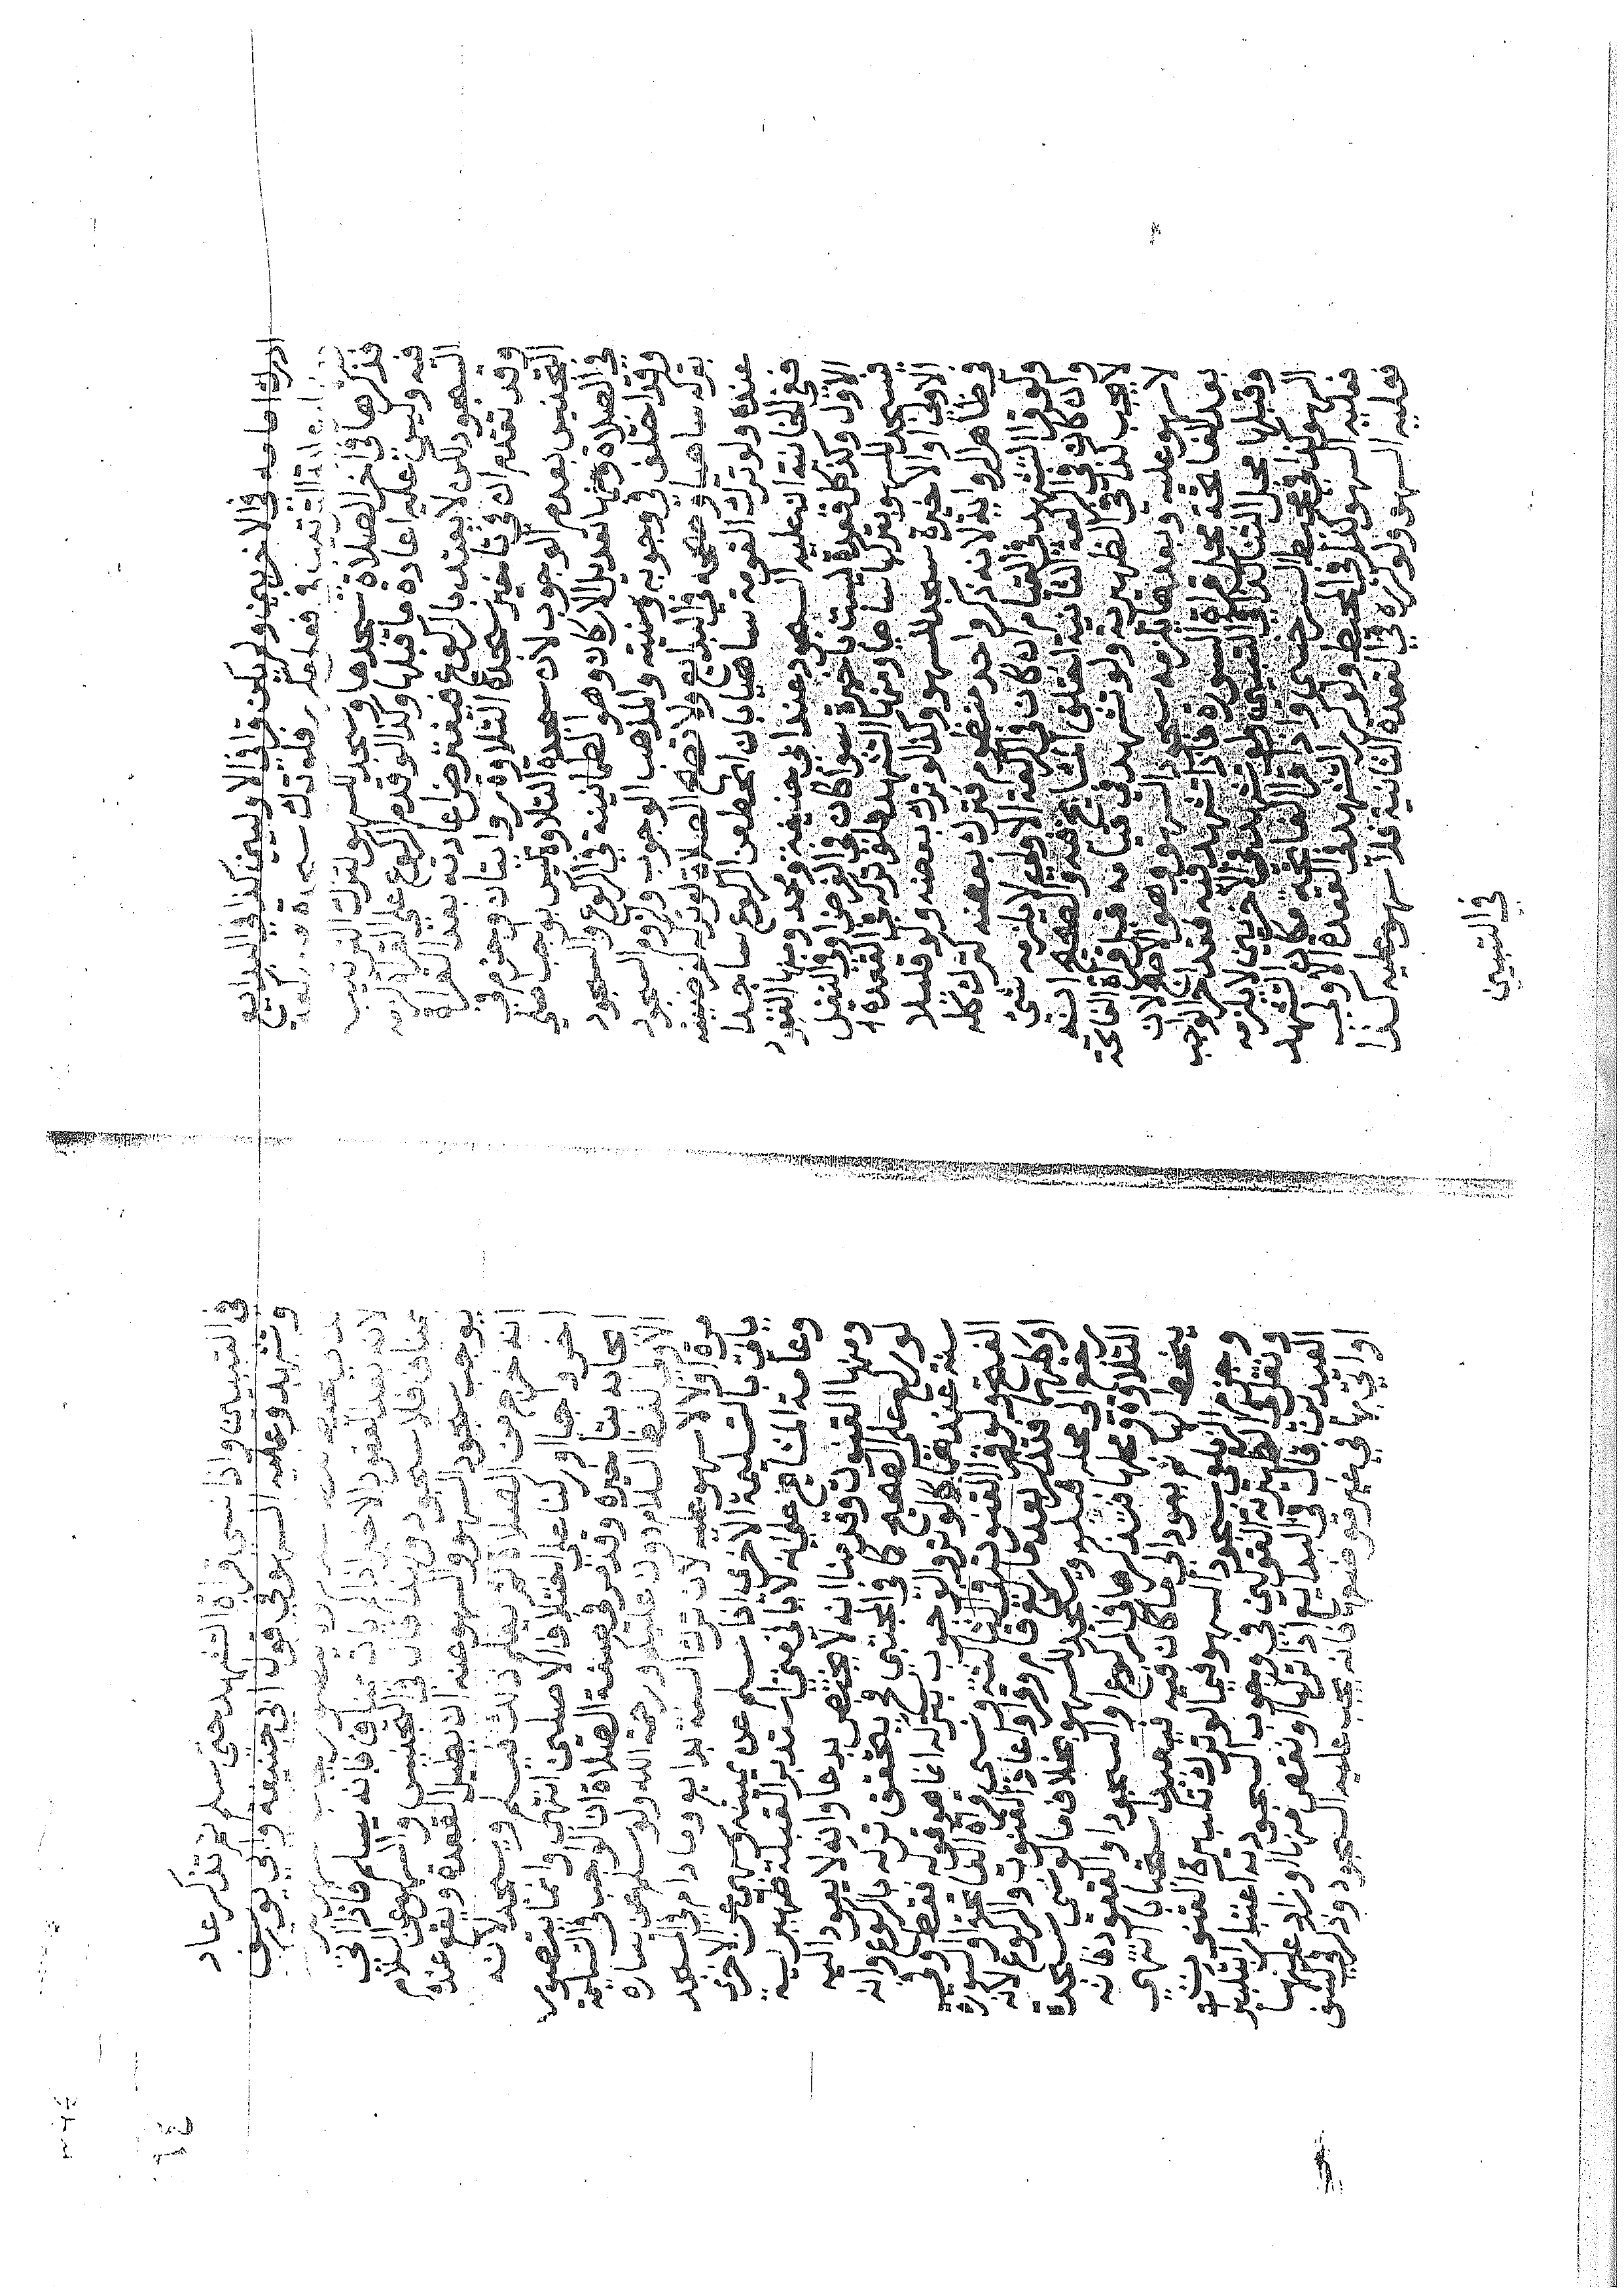 في الاخريين ولم يكن قرا في الاوليين كذا في البدايع
في فعل مكرر فلو ترك سجدة
فتذكرها في اخر الصلاة سجدها وسجد للسهو لترك الترتيب
فيه وليس عليه اعادة ما قبلها وكذا لو قدم الركوع على القراة لزمه
السجود لكن لا يعتد بالركوع فيفترض اعادته بعد القراة
وقد تقدم ان في تاخير سجدة التلاوة روايتان وجزم في
التجنيس بعدم الوجوب لان سجدة التلاوة ليس بواجب اصلي
في الصلاة ومنها تعديل الاركان وهو الطمانينة في الركوع والسجود
وقد اختلف في وجوبه وسنيته والمذهب الوجوب ولزوم السجود
بتركه ساهيا وصححه في البدايع ولا تصح الصلاة بتركه لفرضيته
عنده ولو ترك القومة ساهيا بان انحط من الركوع ساجدا
ففي الخانية ان عليه السجود عند ابي حنيفة ومحمد ومنها القعود
الاول وكذا كل قعدة ليست باخيرة سوا كان في الفرض او في النفل
فيسجد للسهو بتركها ساهيا ومنها التشهد فلو تركه في القعدة
الاولى او الاخيرة سجد للسهو وكذا لو ترك بعضه ولو قليلا
في ظاهر الرواية لانه ذكر واحد منظوم فترك بعضه كترك كله
ولو قرا التشهد في القيام ان كان في الركعة الاولى لا يلزمه شي
وان كان في الركعة الثانية اختلف المشايخ فيه والصحيح انه
لا يجب كذا في الظهيرية ولو تشهد في قيامه قبل قراة الفاتحة
لا سهو عليه وبعدها يلزمه سجود السهو وهو الاصح لان
بعد الفاتحة محل قراة السورة فاذا تشهد فيه فقد اخر الواجب
وقبلها محل الثنا كذا في التبيين ولو تشهد في الاخريين لا يلزمه
السهو كذا في محيط السرخسي واذا قرا الفاتحة مكان التشهد
فعليه السهو وكذا في المحيط ولو كرر التشهد في القعدة الاولى
فعليه السهو ولو كرره في القعدة الثانية فلا سهو عليه كذا
في التبيين
في التبيين واذا نسي قراة التشهد حتى سلم ثم تذكر عاد
وتشهد وعليه السهو في قول ابي حنيفة وابي يوسف
لان بعد القعود الاخير اذا فانه يسلم فاذا اتى
بمناف فلا سجود قال في التجنيس والسهو عن السلام
يوجب سجود السهو والسهو عنه ان يطيل القعدة ويقع عنده
انه خرج من الصلاة ثم يعلم ذلك فيسلم ويسجد لانه
اخر واجبا او ركنا على اختلاف الاصلين انتهى وانما يتصور
ايجابه بتاخيره وقدمنا في صفة الصلاة ان الواجب في التسليمة
الاولى لفظ السلام دون عليكم ورحمة الله ولو سلم عن يساره
اولا لا سهو عليه لان ترك السنة بدايع وما دام في المسجد
ياتي بالتسليمة الاخرى اذا سلم عن يمينه وسهى عن الاخرى
وعامة المشايخ على انه لا ياتي متى استدبر القبلة ظهيرية
ومنها القنوت وقدمنا انه لا يختص بدعا وانه لا يعود اليه
لو ركع على الصحيح كما في المجتبى فيتحقق تركه بالركوع وانه
سنة عندهما كالوتر والوجوب بتركه انما هو قوله فقط وفي
الفتح ولو قرا القنوت في الثالثة ونسي قراة الفاتحة او السورة
او كليهما فتذكر بعد ما ركع قام وقرا واعاد القنوت والركوع لانه
رجع الى محله قبله ويسجد للسهو بخلاف ما لو نسي سجدة
التلاوة ومحلها فتذكرها في الركوع او السجود او القعود فانه
ينحط لها ثم يعود الى ما كان فيه فيعيده استحبابا انتهى
وجزم الزيلعي بسجود السهو فيما لو ترك تكبيرة القنوت
ونقل في الظهيرية القولين في وجوب السجود به اعتبارا
العيدين قال في البدايع اذا تركها او نقص منها او زاد عليها
او اتى بها في غير موضعها فانه يجب عليه السجود وذكر في الكشف